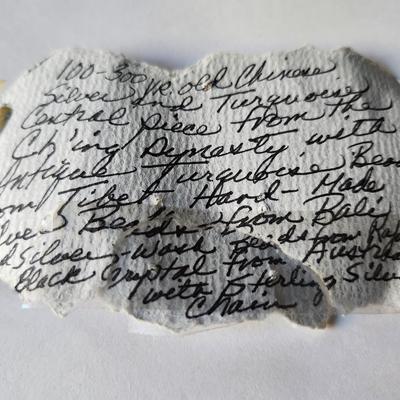 100-300 yr. old Chinese
Silver and Turquoise
Central Piece from the
Ch'ing Dynasty with
Antique Turquoise Bead
from Tibet Hand-Made
Silver Beads from Bali
Silver-Wash Beads from
Black Crystal From Austria
with Sterling Silver
Chain